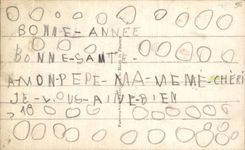 BONNE-ANNÉE
BONNE-SANT-
A-MON-PEPE-MA-MEME-CHERI
JE-VOUS-AIME-BIEN
18